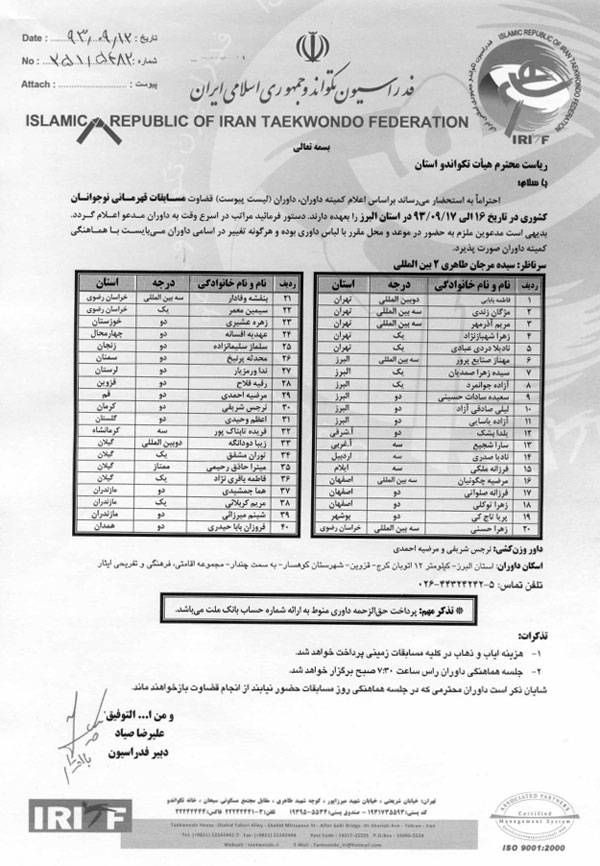 تاریخ : ۹۳/۰۹/۱۲ : Date
شماره: ۲۵۱/۵۶۸۲ : No
پیوست : ............ : Attach
فدراسیون تکواندو جمهوری اسلامی ایران
ISLAMIC REPUBLIC OF IRAN TAEKWONDO FEDERATION
ISLAMIC REPUBLIC OF IRAN TAEKWONDO FEDERATION
IRITF
بسمه تعالی
ریاست محترم هیأت تکواندو استان
با سلام؛
احتراماً به استحضار می‌رساند براساس اعلام کمیته داوران، داوران (لیست پیوست) قضاوت مسابقات قهرمانی نوجوانان
کشوری در تاریخ ۱۶ الی ۹۳/۰۹/۱۷ در استان البرز را بعهده دارند. دستور فرمائید مراتب در اسرع وقت به داوران مدعو اعلام گردد.
بدیهی است مدعوین ملزم به حضور در موعد و محل مقرر با لباس داوری بوده و هرگونه تغییر در اسامی داوران می‌بایست با هماهنگی
کمیته داوران صورت پذیرد.
سرناظر: سیده مرجان طاهری ۲ بین المللی
ردیف نام و نام خانوادگی درجه استان
۱ فاطمه بابایی دوبین المللی تهران
۲ مژگان زندی سه بین المللی تهران
۳ مریم آذرمهر سه بین المللی تهران
۴ زهرا شهبازنژاد یک تهران
۵ نادیلا دردی عبادی یک تهران
۶ مهناز صنایع پرور سه بین المللی البرز
۷ سیده زهرا صمدیان یک البرز
۸ آزاده جوانمرد یک البرز
۹ سعیده سادات حسینی دو البرز
۱۰ لیلی صادقی آزاد دو البرز
۱۱ آزاده باسایی دو البرز
۱۲ یلدا پشک دو آ.شرقی
۱۳ سارا شجیع سه آ.غربی
۱۴ نادیا صدری سه اردبیل
۱۵ فرزانه ملکی سه ایلام
۱۶ مرضیه چگونیان سه بین المللی اصفهان
۱۷ فرزانه صلواتی دو اصفهان
۱۸ زهرا توکلی دو اصفهان
۱۹ پریا تاج کی دو بوشهر
۲۰ زهرا حسنی سه بین المللی خراسان رضوی
ردیف نام و نام خانوادگی درجه استان
۲۱ بنفشه وفادار سه بین المللی خراسان رضوی
۲۲ سیمین معمر یک خراسان رضوی
۲۳ زهره عشیری دو خوزستان
۲۴ عهدیه افسانه دو چهارمحال
۲۵ سلماز سلیمانزاده دو زنجان
۲۶ محدثه پرنیخ دو سمنان
۲۷ ندا ورمزیار دو لرستان
۲۸ رقیه فلاح دو قزوین
۲۹ مرضیه احمدی دو قم
۳۰ نرجس شریفی دو کرمان
۳۱ اعظم وحیدی دو گلستان
۳۲ فریده تابناک پور سه کرمانشاه
۳۳ زیبا دودانگه دوبین المللی گیلان
۳۴ توران مشفق یک گیلان
۳۵ میترا حاذق رحیمی ممتاز گیلان
۳۶ فاطمه باقری نژاد یک گیلان
۳۷ هما جمشیدی دو مازندران
۳۸ مریم کربلائی یک مازندران
۳۹ شبنم میرزائی دو مازندران
۴۰ فروزان بابا حیدری دو همدان
داور وزن‌کشی: نرجس شریفی و مرضیه احمدی
اسکان داوران: استان البرز- کیلومتر ۱۲ اتوبان کرج- قزوین- شهرستان کوهسار- به سمت چندار- مجموعه اقامتی، فرهنگی و تفریحی ایثار
تلفن تماس: ۵-۴۴۳۲۴۲۴۲-۰۲۶
* تذکر مهم: پرداخت حق‌الزحمه داوری منوط به ارائه شماره حساب بانک ملت می‌باشد.
تذکرات:
۱- هزینه ایاب و ذهاب در کلیه مسابقات زمینی پرداخت خواهد شد.
۲- جلسه هماهنگی داوران راس ساعت ۷:۳۰ صبح برگزار خواهد شد.
شایان ذکر است داوران محترمی که در جلسه هماهنگی روز مسابقات حضور نیابند از انجام قضاوت بازخواهند ماند.
و من ا... التوفیق
علیرضا صیاد
دبیر فدراسیون
IRITF
تهران: خیابان شریعتی، خیابان شهید میرزاپور، کوچه شهید طاهری، مقابل مجتمع مسکونی سبحان، خانه تکواندو
ASSOCIATED PARTNERS
Certified
Management System
ISO 9001:2000